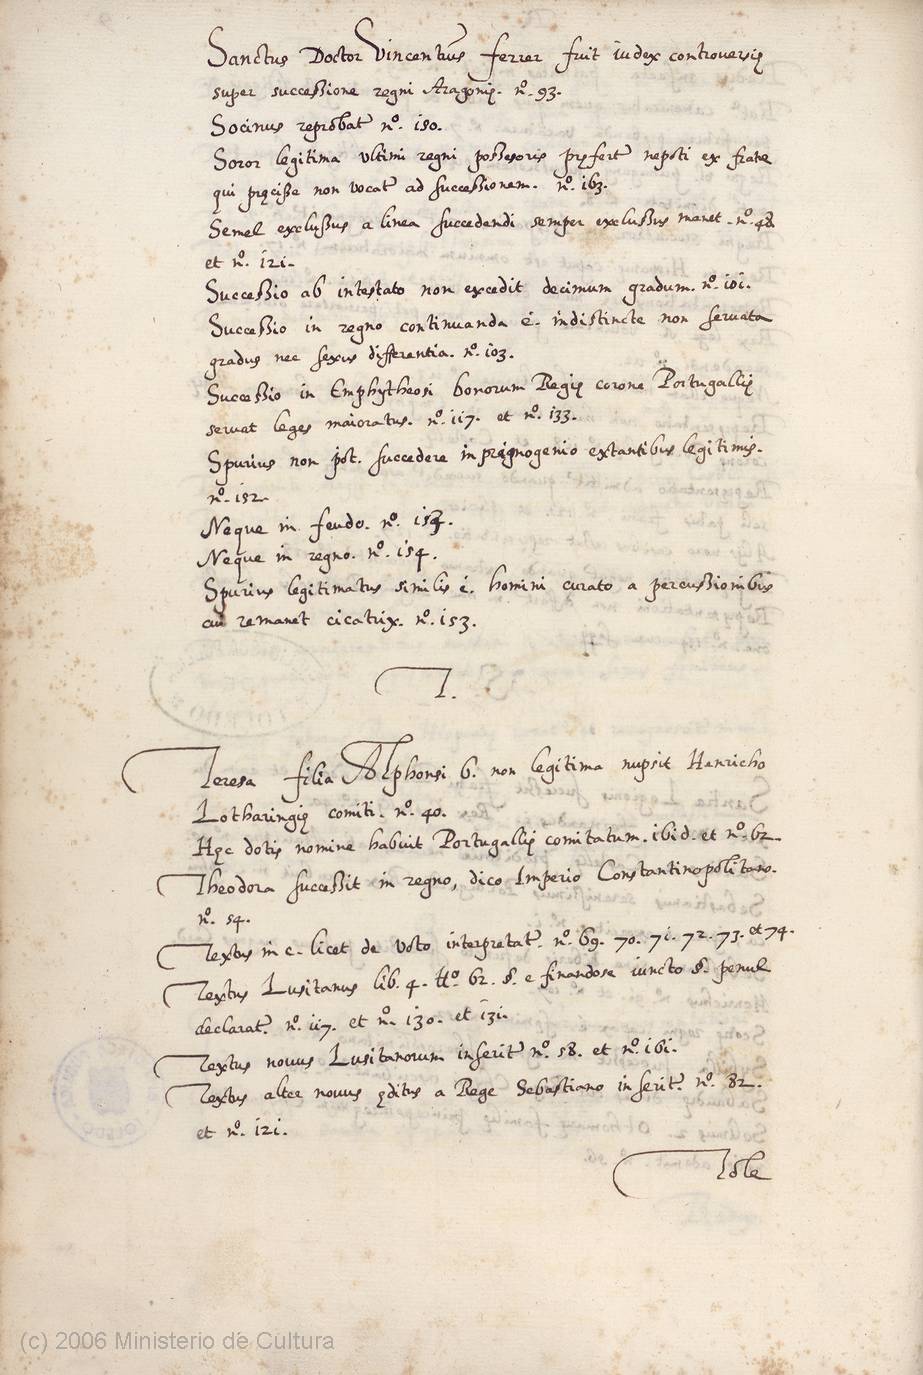 Sanctus Doctor Vincentius ferrer fuit iudex controversię
super successione regni Aragonię. nº. 93.
Socinus reprobat~ nº. 150.
Soror legitima ultimi regni possesoris pręfert~ nepoti ex fratre
qui pręcisse non vocat~ ad successionem. nº. 163.
Semel exclussus a linea succedendi semper exclussus manet. nº. 48
et nº. 121.
Successio ab intestato non excedit decimum gradum. nº. 101.
Successio in regno continuanda ē. indistincte non servata
gradus nec sexus differentia. nº. 103.
Successio in Emphytheosi bonorum Regię corone Portugallię
servat leges maioratus. nº. 117. et nº. 133.
Spurius non pot. succedere in extantibus legitimis.
nº. 152
Neque in feudo. nº.
Neque in regno. nº. 154.
Spurius legitimatus similis ē. homini curato a percussionibus
cui remanet cicatrix. nº. 153.
T.
Teresa filia Alphonsi 6. non legitima nupsit Henricho
Lotharingię comiti. nº. 40.
Hęc dotis nomine habuit Portugallię comitatum. ibid. et nº. 62
Theodora successit in regno, dico Imperio Constantinopolitano.
nº. 54.
Textus in c. licet de voto interpretat~. nº. 69. 70. 71. 72. 73. et 74.
Textus Lusitanus lib. 4. ttº. 62. §. e finandose iuncto §. penul
declarat~. nº. 117. et nº. 130. et 131.
Textus novus Lusitanorum inserit~ nº. 58. et nº. 161.
Textus alter novus ęditus a Rege Sebastiano inserit~. nº. 82.
et nº. 121.
Tole
(c) 2006 Ministerio de Cultura